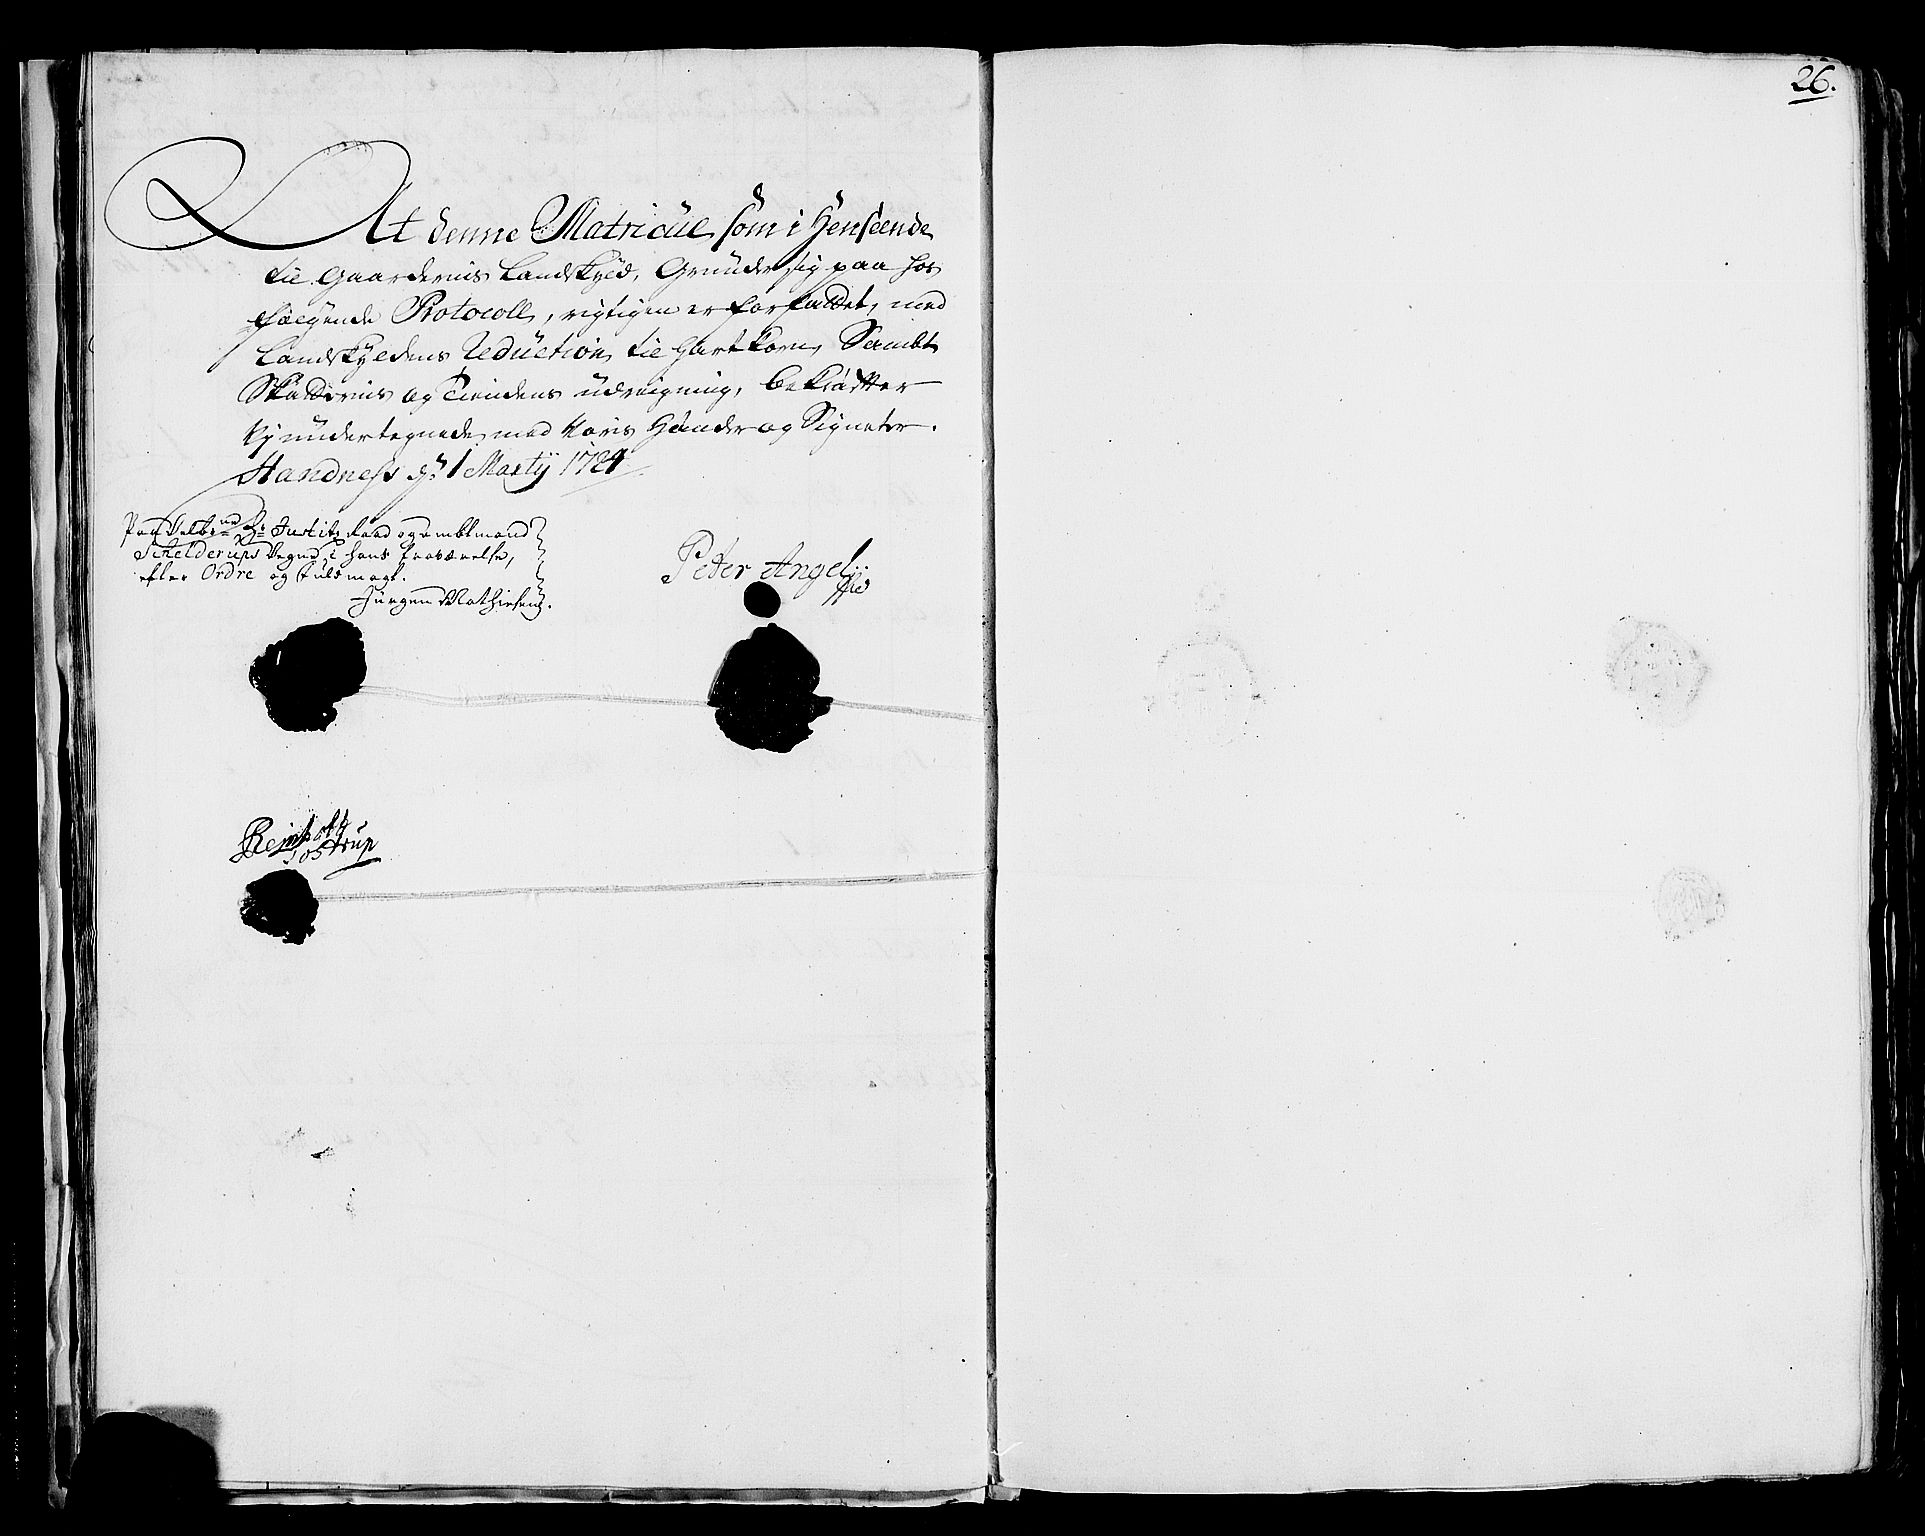 26.
At denne Matricul, som i Henseende
til Gaardernis Landskyld, Grunder sig paa hos
følgende Protocoll, rigtigen er forfattet, med
Landskyldens Reduction til Hartkorn, Sambt
Skatternis og Tiendens udreigning, bekræfter
Vj undertegnede med Voris Hænder og Signeter.
Standness d: 1 Martij 1724
Paa Velb: Hr: Justitz Raad og Ambtmand
Schelderups Vegne i hans fraværelse,
efter Ordre og fuldmagt.
Jürgen Mathiesen.
Peter Angell
Reinholt
Tostrup